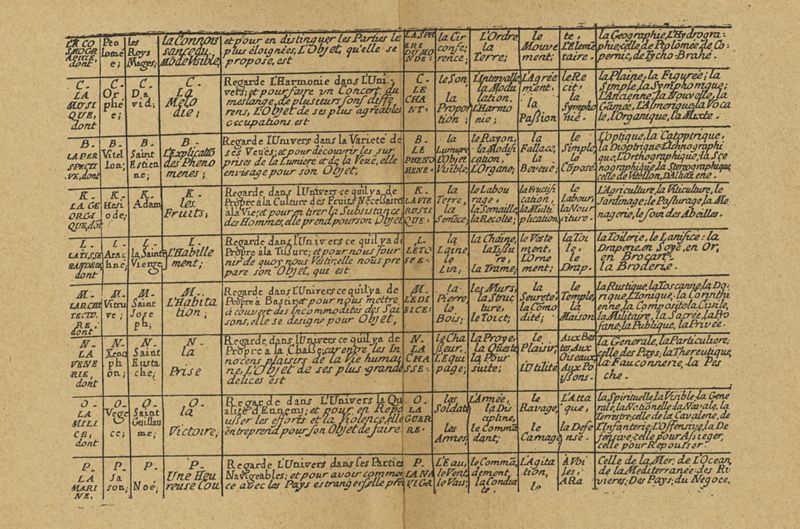 LA CO
SMOGR
APHIE,
dont
Pto
lome
e;
les
Roys
Mages;
la Connois
sance du
Mode Visible,
et pour en distinguer les Parties le
plus éloignées, L'Objet, qu'elle se
propose, est
LA SPH
ERE
DU MO
NDE:
la Cir
confe;
rence;
L'Ordre
la
Terre;
le
Mouve
ment;
te;
L'Eleme
taire.
la Geographie, L'Hydrogra-
phie, celle de Ptolomée de Co-
pernic, de Tycho-Brahe.
C-
LA
MUSI
QUE,
dont
C-
Or
phé
e;
C-
Da
vid;
C-
LA
Mélo
die;
Regarde L'Harmonie dans L'Uni-
vers; et pour faire un Concert du
meslange, de plusieurs sons diffe-
rens, L'Objet de ses plus agréables
occupations est
C-
LE
CHA
NT.
le Son,
la
Propor
tion;
L'Intervalle
la Modu
lation,
L'Harmo
nie;
L'Agrée
ment,
la
Passion
le Ré
cit
la
Sympho
nie.
la Plaine, la Figurée; la
Simple, la Symphonique;
L'Ancienne, la Nouvelle, la
Game, L'Almerique, la Voca
le, L'Organique, la Mixte.
B-
LA PER
SPECTI
VE, dont
B-
Vitel
lon;
B-
Saint
Estien
ne;
B-
L'Explicatio
des Pheno
menes;
Regarde L'Univers dans la Varieté de
ses Veues; et pour découvrir les sur
prises de la Lumiere et de la Veuë, elle
envisage pour son Objet,
B-
LE
PHENO
MENE:
la
Lumiere
L'Objet
Visible;
le Rayon,
la Modifi
cation,
L'Organe;
la
Fallace,
la
Beveuë;
le
Simple,
le
Copose
L'Optique, la Catoptrique,
la Dioptrique L'Ichnographi
que, L'Orthographique, la Sce
nographique, la Stereographique,
celle de Vitellon, D'Alhazene.
K-
LA GE
ORGI
QUE, dot
K-
Hesi
o de;
K-
Adam
K-
les
Fruits,
Regarde, dans L'Univers ce qu'il y a de
Propre à la Culture des Fruits Necessaires
à la Vie; et pour en tirer la Substance
des Hommes, elle prend pour son Objet
K-
LA VIE
RUSTI
QUE-
la
Terre,
la
Semêce
le Labou
rage,
la Semaille
la Recolte;
la Fructifi
cation,
la Multi
plication;
le
Labour,
la Nour-
riture.
L'Agriculture, la Viticulture, le
Jardinage; le Pasturage, la Mé-
nagerie, le soin des Abeilles.
L-
LA TISSE
RANDERIE
L-
Arac
hné;
L-
la Sainte
Vierge
L-
L'Habille
ment;
Regarde dans L'Univers ce qu'il y a de
Propre à la Tissure; et pour nous four
nir de quoy nous Vestir, elle nous pré
pare son Objet, qui est
L-
L'ETO
FFE-
la
Laine,
le
Lin,
la Chaine,
la Tissu
re,
la Trame;
le Veste
ment,
L'Orne
ment;
la Toi
le,
le
Drap.
la Toilerie, le Lanifice: la
Draperie, en Soye, en Or,
en Brocart,
la Broderie.
M-
L'ARCHI
TECTU.
RE,
M-
Vitru
ve;
M-
Saint
Jose
ph,
M-
L'Habita
tion;
Regarde, dans L'Univers ce qu'il y a, de
Propre à Bastir, et pour nous mettre
à couvert des Incommodités des Sai
sons, elle se designe pour Objet,
M-
L'EDI
FICE:
la
Pierre,
le
Bois;
les Murs,
la Struc
ture,
le Toict;
la
Seureté,
la Como
dité;
le
Temple,
la
Maison
la Rustique, la Toscanne, la Do-
rique, L'Ionique, la Corinthi
enne, la Composite, la Civile,
la Militaire, la Sacrée, la Pro
fane, la Publique, la Privée.
N-
LA
VENE
RIE,
dont
N-
Xeno
ph
on;
N-
Saint
Eusta
che;
N-
la
Prise
Regarde, dans L'Univers ce qu'il y a de
Propre à la Chasse; car entre les In
nocens plaisirs de la Vie humai
ne, L'Objet de ses plus grandes
delices est
N-
LA
CHA
SSE-
le Cha
sseur,
L'Equi
page;
la Proye,
la Queste
la Pour
suite;
le
Plaisir,
L'Utilité
Aux Bes
tes Aux
Oiseaux
Aux Po
issons.
la Generale, la Particuliere;
celle des Pays, la Thereutique,
la Fauconnerie, la Pes
che.
O-
LA
MILI
CE,
dont
O-
Vege
ce;
O-
Saint
Guillau
me;
O-
la
Victoire;
Regarde dans L'Univers la Qu
alité d'Ennemy; et pour en Repo
usser les efforts et la violence, elle
entreprend pour son Objet de faire
O-
LA
GUER
RE-
les
Soldats
les
Armes
L'Armée,
la Di
cipline,
le Comma
dant;
le
Ravage,
le
Carnage
L'Atta
que,
la Defe
nse.
la Spirituelle, la Visible, la Gene
rale, la Nationelle, la Navale, la
Terrestre, celle de la Cavalerie, de
L'Infanterie: L'Offensive, la De
fensive, celle pour Assieger,
celle pour Repousser.
P-
LA
MARI
NE,
P-
Ja
son;
P-
Noé;
P-
Une Heu
reuse Cou
Regarde L'Univers dans ses Parties
Navigeables; et pour avoir commer
ce avec les Pays estrangers, elle pre
P-
LA NA
VIGA
L'Eau,
le Vent
le Vais;
le Comma
dement,
la Condui
te
L'Agita
tion,
le
À Voi
les,
A Ra
Celle de la Mer, de L'Ocean,
de la Mediterranée; des Ri
vieres; Des Pays; du Negoce,